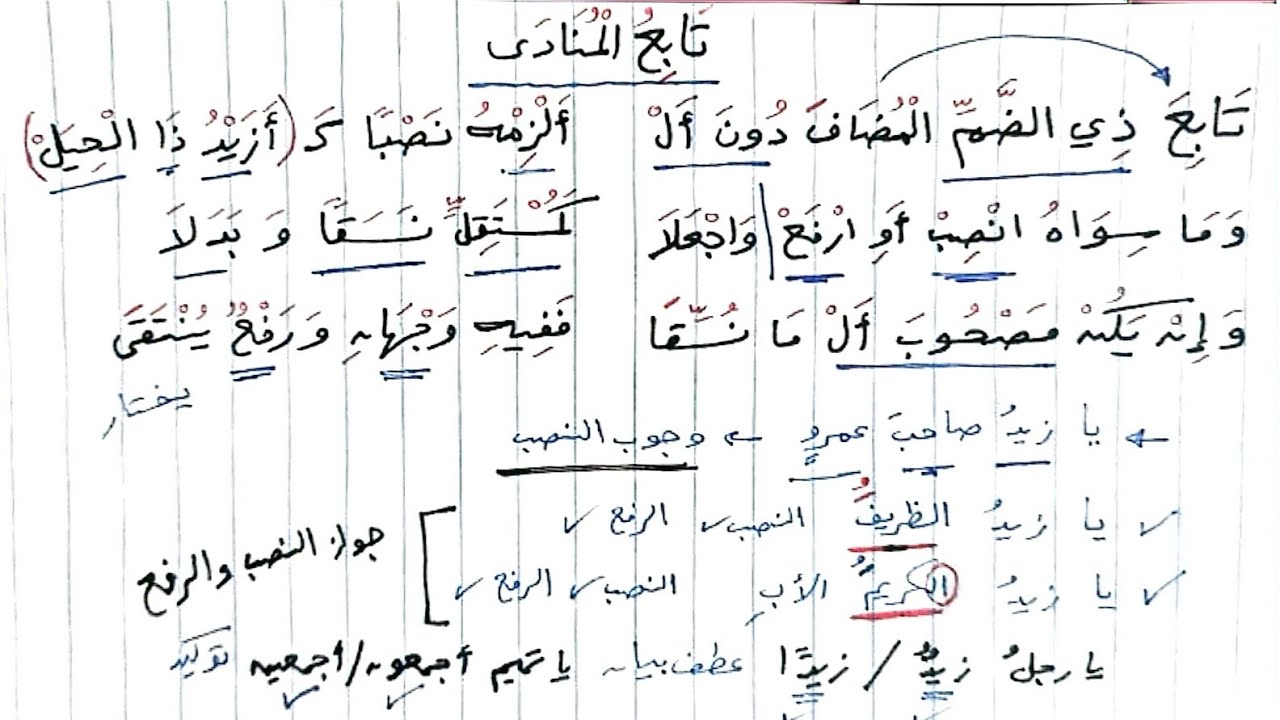 تَابِعُ الْمُنَادَى
تَابِعَ ذِي الضَّمِّ الْمُضَافَ دُونَ أَلْ أَلْزِمْهُ نَصْبًا كَـ (أَزَيْدُ ذَا الْحِيَلْ)
وَمَا سِوَاهُ انْصِبْ أَوِ ارْفَعْ وَاجْعَلَا كَمُسْتَقِلٍّ نَسَقًا وَ بَدَلَا
وَإِنْ يَكُنْ مَصْحُوبَ أَلْ مَا نُسِّقَا فَفِيهِ وَجْهَانِ وَرَفْعٌ يُنْتَقَى
يختار
← يا زيدُ صاحبَ عمرٍو ← وجوب النصب
✓ يا زيدُ الظريفُ النصب ✓ الرفع ✓
جواز النصب والرفع
✓ يا زيدُ الكريمُ الأبِ النصب ✓ الرفع ✓
يا رجلُ زيدٌ / زيدًا عطف بيان يا تميم أجمعون / أجمعين توكيد